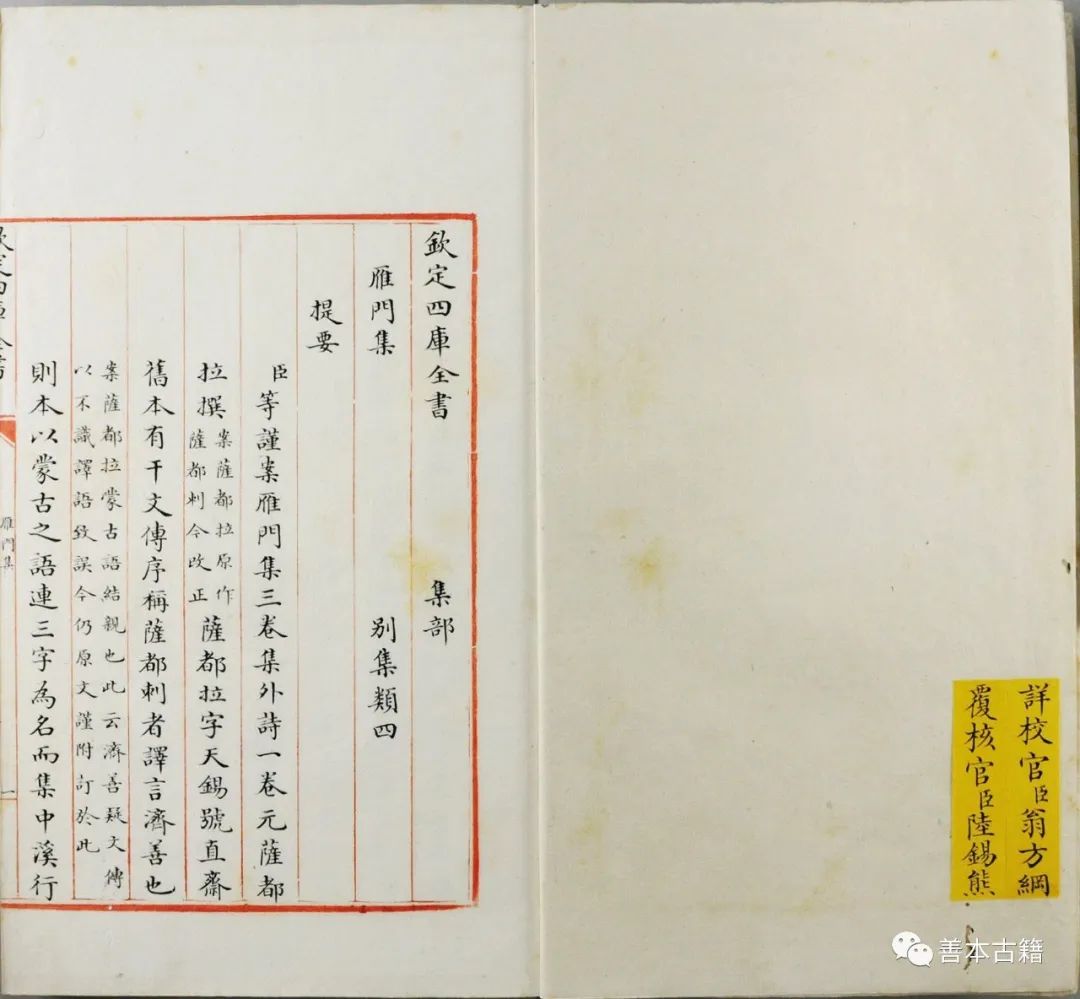 詳校官臣翁方綱
覆核官臣陸錫熊
欽定四庫全書 集部
雁門集 別集類四
提要
臣等謹案雁門集三卷集外詩一卷元薩都
拉撰
案薩都拉原作
薩都剌今改正
薩都拉字天錫號直齋
舊本有干文傳序稱薩都剌者譯言濟善也
案薩都拉蒙古語結親也此云濟善疑文傳
以不識譯語致誤今仍原文謹附訂於此
則本以蒙古之語連三字為名而集中溪行
欽定四庫全書
雁門集
一
善本古籍